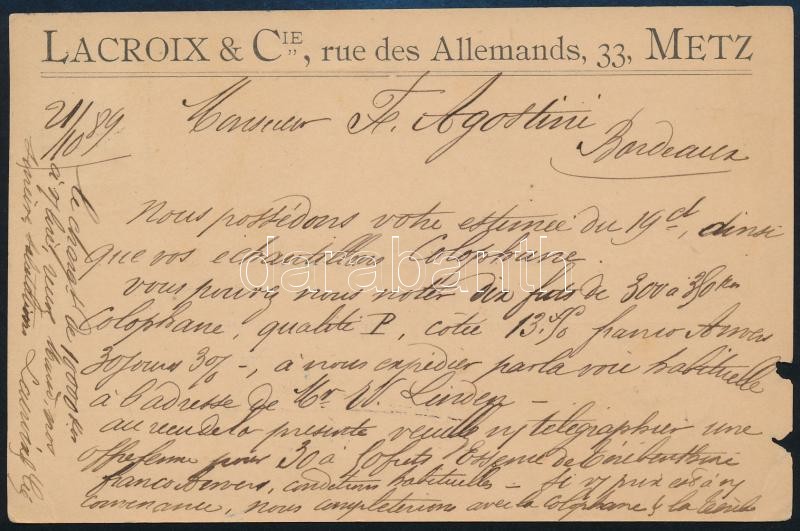 LACROIX & CIE, rue des Allemands, 33, METZ
21/10 89
Monsieur F. Agostini
Bordeaux
Nous possédons votre estimée du 19 ct, ainsi
que vos echantillons Colophane.
vous pouvez nous noter dix futs de 300 à 350 Kn
Colophane, qualité P, côtée 13.50 franco Anvers
30 jours 3% -, à nous expédier par la voie habituelle
à l'adresse de Mr W. Linden -
au reçu de la présente veuillez télégraphier une
offre ferme pour 30 à futs Essence de térébenthine
franco Anvers, conditions habituelles - Si prix est à
convenance, nous completerions avec la colophane & la
le charg t de 10000 Kn
Lacroix & Cie
darabanth